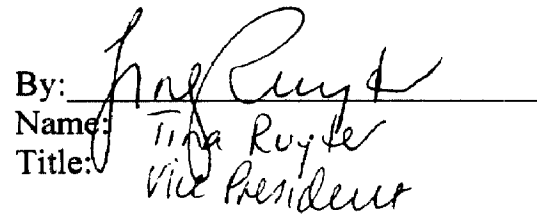 By: Tina Ruyter
Name: Tina Ruyter
Title: Vice President